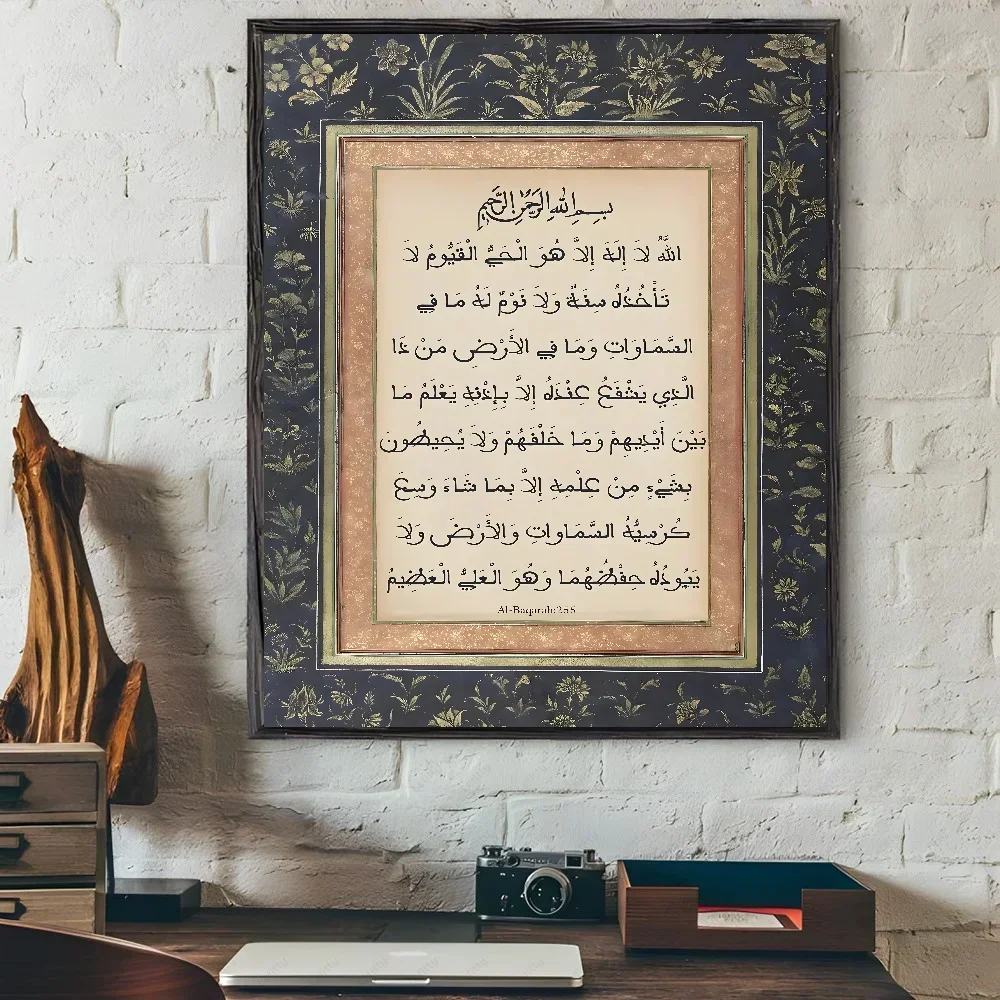 بسم الله الرحمن الرحيم
اللَّهُ لاَ إِلَهَ إِلاَّ هُوَ الْحَيُّ الْقَيُّومُ لاَ
تَأْخُذُهُ سِنَةٌ وَلاَ نَوْمٌ لَهُ مَا فِي
السَّمَاوَاتِ وَمَا فِي الأَرْضِ مَنْ ذَا
الَّذِي يَشْفَعُ عِنْدَهُ إِلاَّ بِإِذْنِهِ يَعْلَمُ مَا
بَيْنَ أَيْدِيهِمْ وَمَا خَلْفَهُمْ وَلاَ يُحِيطُونَ
بِشَيْءٍ مِنْ عِلْمِهِ إِلاَّ بِمَا شَاءَ وَسِعَ
كُرْسِيُّهُ السَّمَاوَاتِ وَالأَرْضَ وَلاَ
يَئُودُهُ حِفْظُهُمَا وَهُوَ الْعَلِيُّ الْعَظِيمُ
Al-Baqarah:255